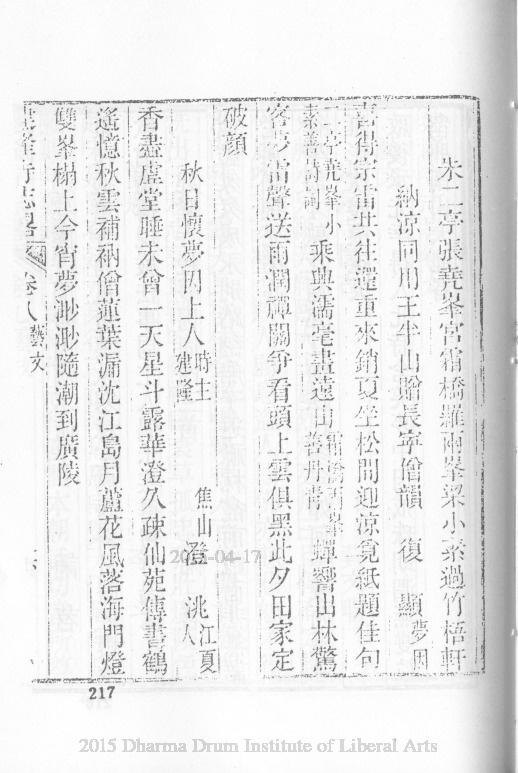 朱二亭張堯峯宮霜橋羅兩峯梁小素過竹梧軒
納涼同用王半山贈長寧僧韻 復 顯夢因
喜得宗雷共往還重來銷夏坐松間迎涼覓紙題佳句
二亭堯峯小素善詩詞乘興濡毫畫遠山霜橋兩峯善丹青蟬響山林驚
客夢雷聲送雨潤禪關爭看頭上雲俱黑此夕田家定
破顏
秋日懷夢因上人時主建隆 焦山澄 洮江夏人
香盡虛堂睡未曾一天星斗露華澄久疎仙苑傳書鶴
遙憶秋雲補衲僧蓮葉漏沈江島月蘆花風落海門燈
雙峯榻上今宵夢渺渺隨潮到廣陵
寺志畧 卷八藝文
217
2015-04-17
2015 Dharma Drum Institute of Liberal Arts